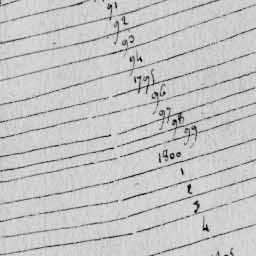 91
92
93
94
1795
96
97
98
99
1800
1
2
3
4